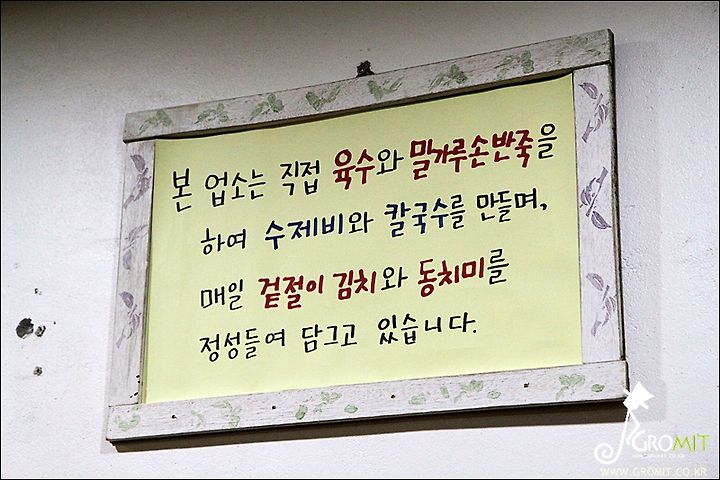 본 업소는 직접 육수와 밀가루손반죽을
하여 수제비와 칼국수를 만들며,
매일 겉절이 김치와 동치미를
정성들여 담그고 있습니다.
GROMIT
WWW.GROMIT.CO.KR